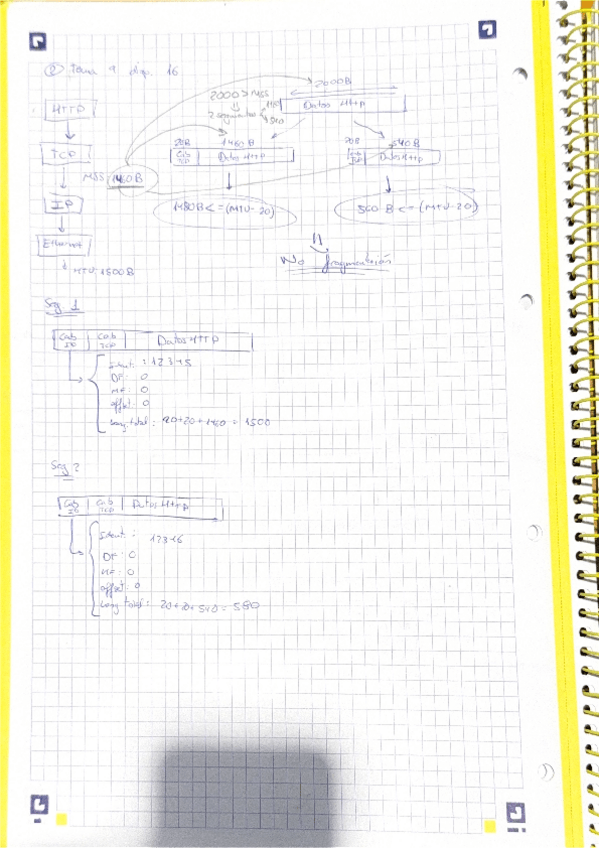 ② Tema 9 diap. 16
2000B
2000 > MSS
HTTP
2 segmentos
1460
540
Datos Http
20B 1460B
20B 540B
TCP
Cab TCP Datos Http
Cab TCP Datos HTTP
MSS: 1460B
IP
1480B <= (MTU-20)
560 B <= (MTU-20)
Ethernet
No fragmentación
MTU: 1500B
Seg 1
Cab IP Cab TCP Datos HTTP
Ident.: 12345
DF: 0
MF: 0
offset: 0
Long. total: 20+20+1460 = 1500
Seg 2
Cab IP Cab TCP Datos Http
Ident.: 12346
DF: 0
MF: 0
offset: 0
Long. total: 20+20+540 = 580